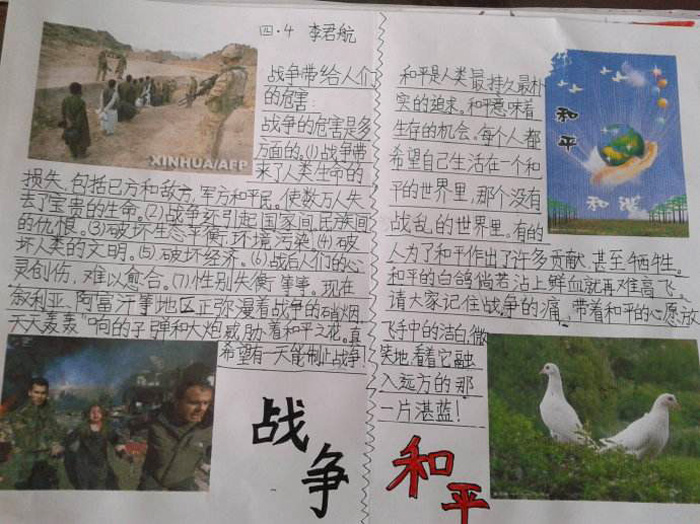 四·4 李君航
战争带给人们
的危害:
战争的危害是多
方面的。(1)战争带
来了人类生命的
损失,包括已方和敌方,军方和平民。使数万人失
去了宝贵的生命。(2)战争还引起国家间,民族间
的仇恨。(3)破坏生态平衡,环境污染。(4)破
坏人类的文明。(5)破坏经济。(6)战后人们的心
灵创伤,难以愈合。(7)性别失衡等等。现在
叙利亚、阿富汗等地区正弥漫着战争的硝烟
天天轰轰”响的子弹和大炮威胁着和平之花。真
希望有一天能制止战争!
XINHUA/AFP
战争
和平是人类最持久最朴
实的追求。和平意味着
生存的机会。每个人都
希望自己生活在一个和
平的世界里,那个没有
战乱的世界里。有的
人为了和平作出了许多贡献,甚至牺牲。
和平的白鸽倘若沾上鲜血就再难高飞。
请大家记住战争的痛,带着和平的心愿放
飞手中的洁白,微
笑地看着它融
入远方的那
一片湛蓝!
和平
和谐
和平